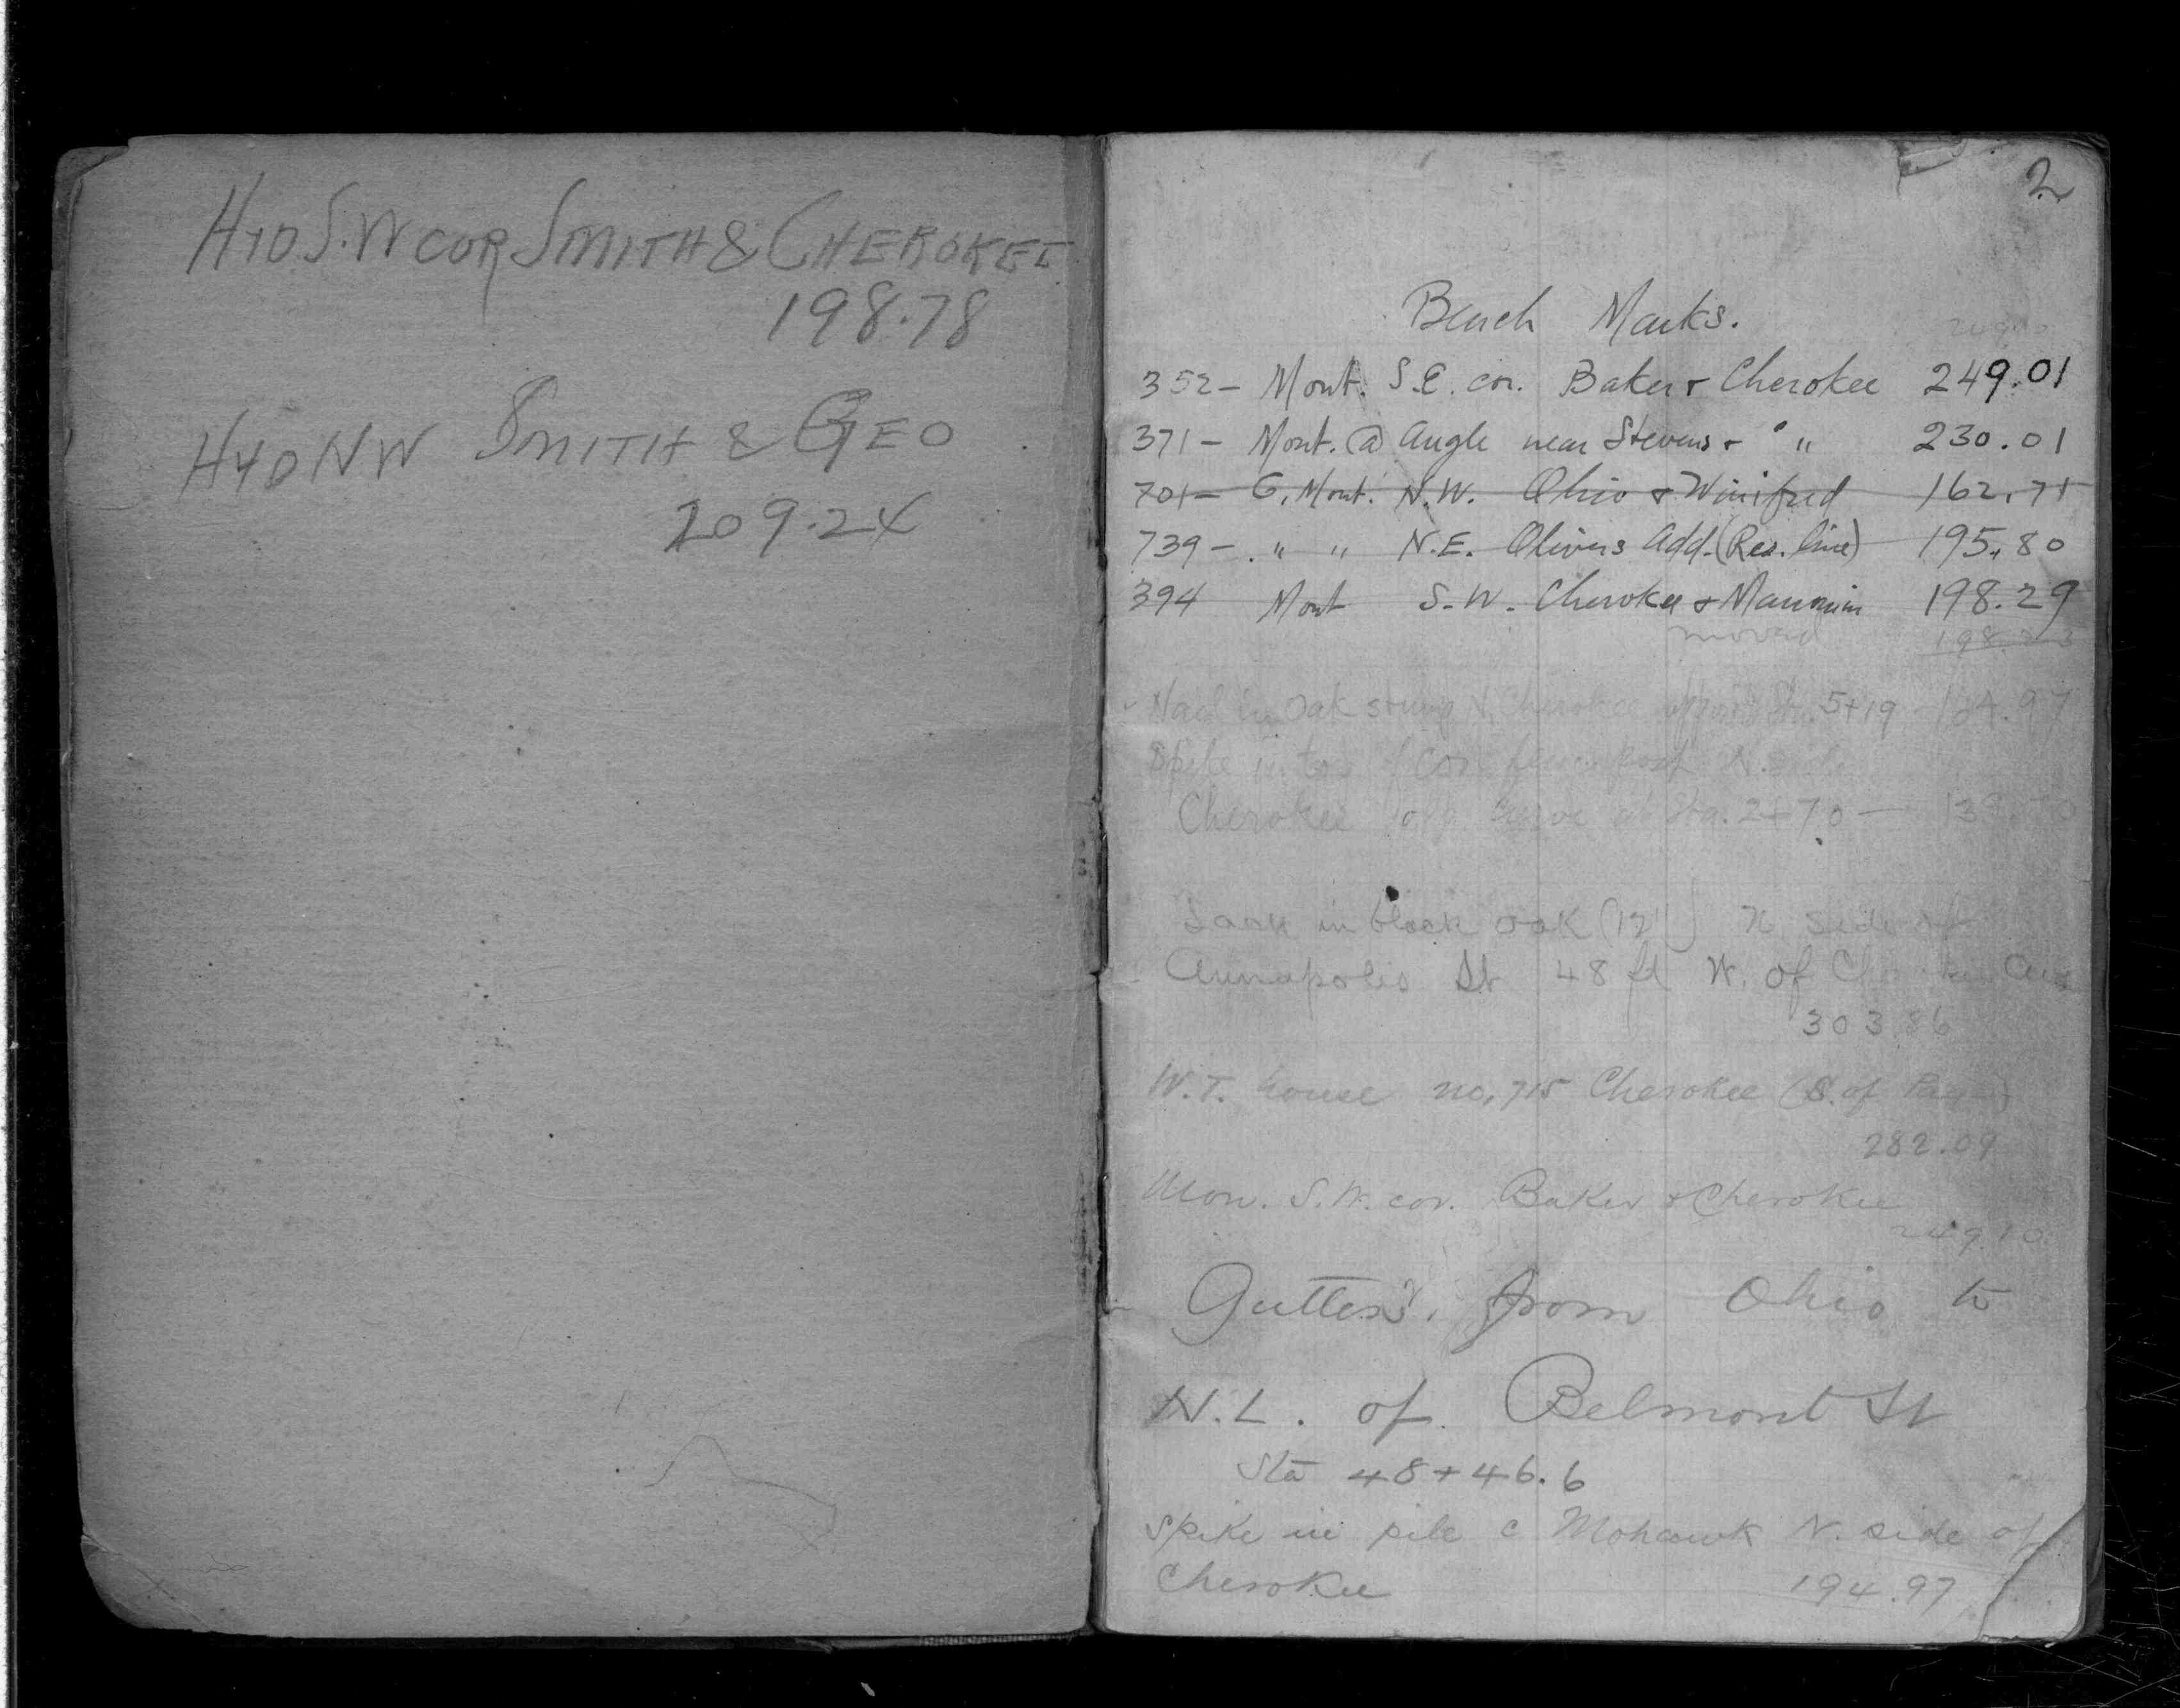 HYD S.W COR SMITH & CHEROKEE
198.78
HYD NW SMITH & GEO
209.24
2
Bench Marks.
352 - Mont. S.E. cor. Baker + Cherokee 249.01
371 - Mont. @ Angle near Stevens + " " 230.01
701 - G. Mont. N.W. Ohio + Winifred 162.71
739 - " " N.E. Olivers Add. (Res. line) 195.80
394 Mont S.W. Cherokee + 198.29
moved
Nail in Oak stump N. Cherokee Sta. 5+19
Spike in top of cor. fence post N. side
Cherokee curve at Sta. 2+70 -
in black oak (12") N. side of
Annapolis St 48 ft W. of Ave
303.86
W.T. house no. 715 Cherokee (S. of
282.09
Mon. S.W. cor. Baker + Cherokee
249.10
Gutters. from Ohio to
N.L. of Belmont St
Sta 48+46.6
Spike in pile c Mohawk N. side of
Cherokee 194.97